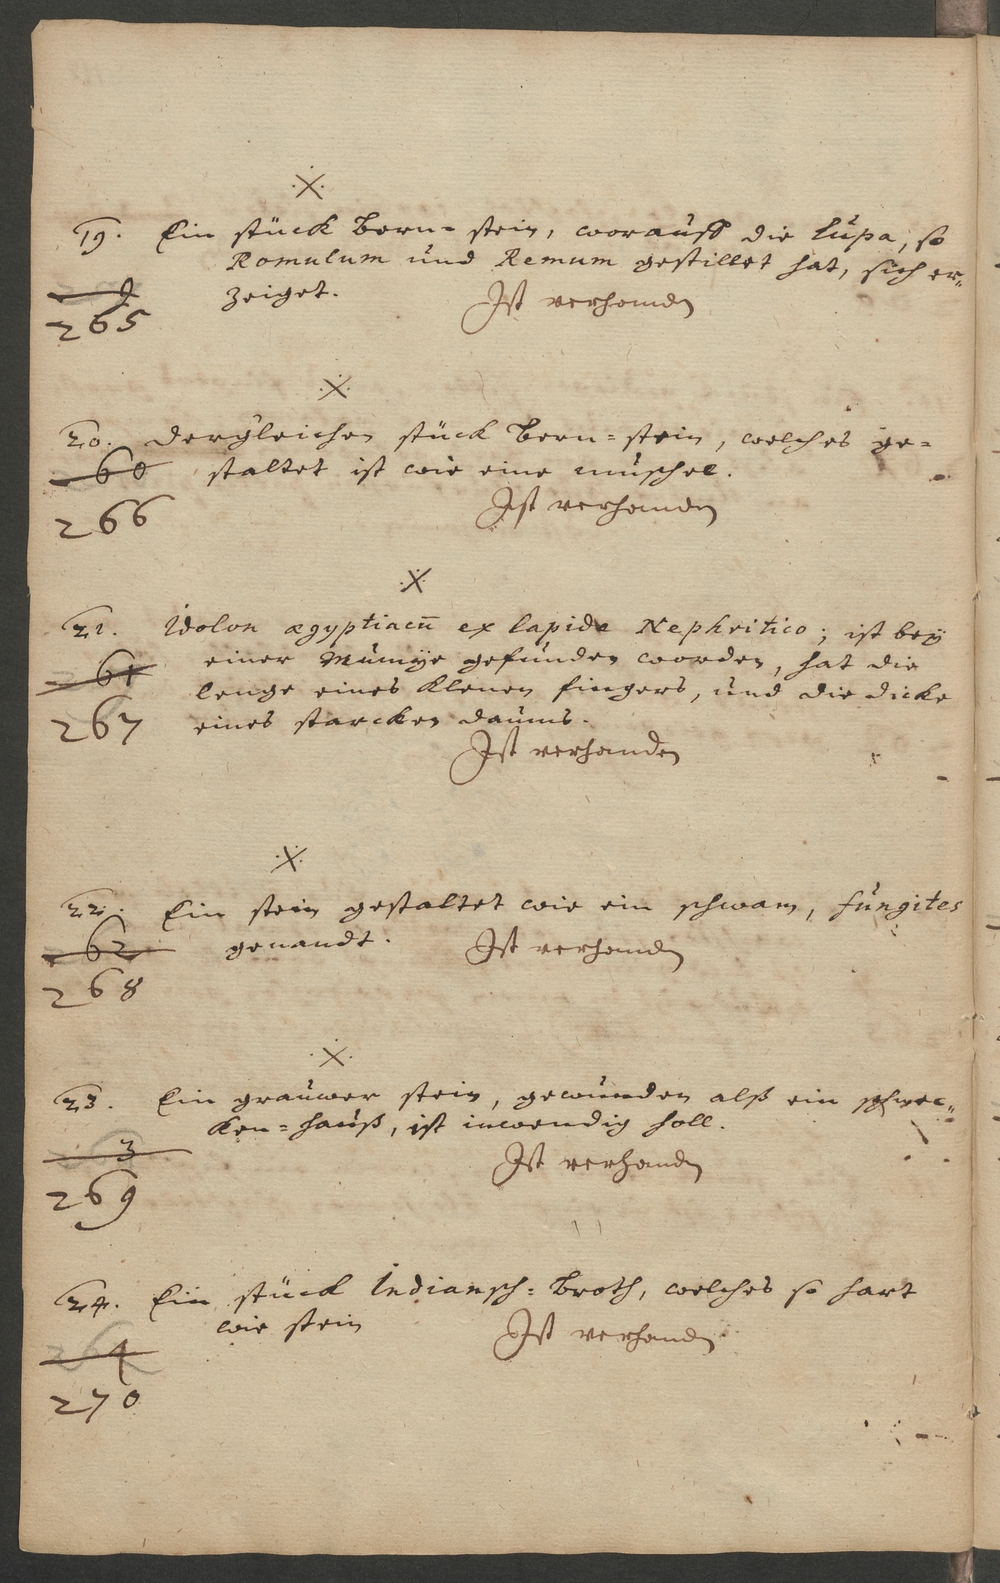 ·X·
19. Ein stück Bern-stein, worauff die Lupa, so
Romulum und Remum gestillet hat, sich er=
9 zeiget. Ist verhanden
265
·X·
20. dergleichen stück Bern=stein, welches ge=
60 staltet ist wie eine muschel.
266 Ist verhanden
·X·
21. Idolon ægyptiacū ex lapide Nephritico; ist beÿ
61 einer Mumÿe gefunden worden, hat die
lenge eines Klenen fingers, und die dicke
267 eines starcken daums.
Ist verhanden
·X·
22. Ein stein gestaltet wie ein schwam, fungites
62 genandt. Ist verhanden
268
·X·
23. Ein grauwer stein, gewunden alß ein schnec=
Ken=hauß, ist inwendig holl.
3 Ist verhanden
269
24. Ein stück Indiansch=Broth, welches so hart
wie stein Ist verhanden
4
270